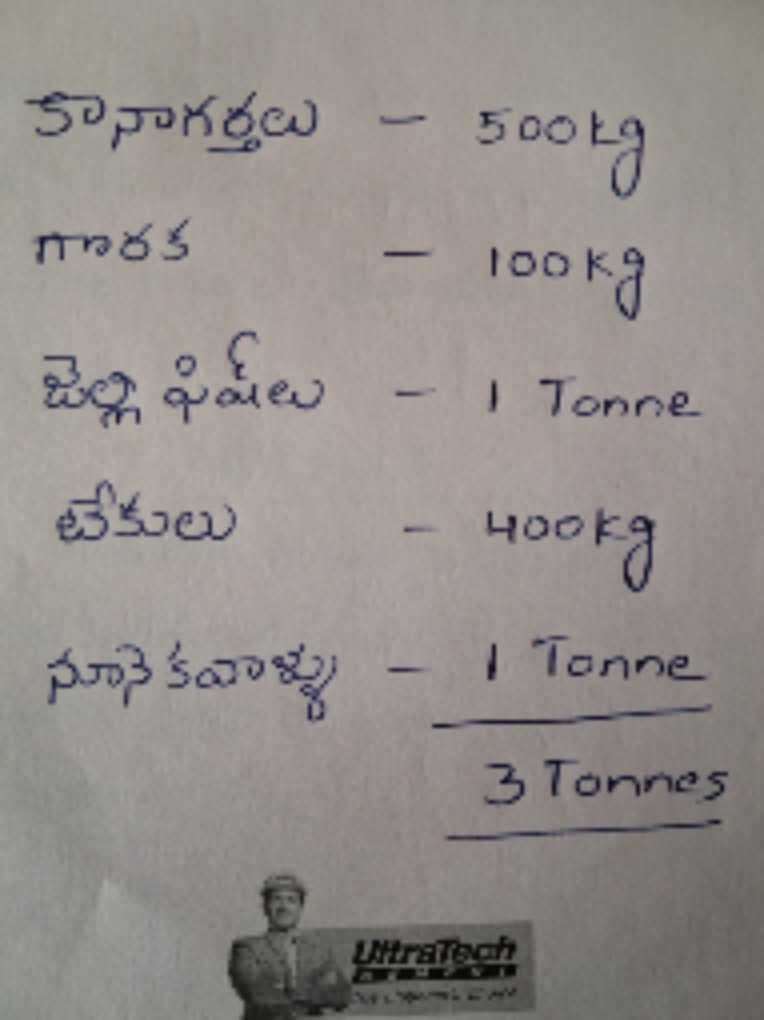 కానాగర్తలు - 500kg
గొరక - 100kg
జెల్లి ఫిష్‌లు - 1 Tonne
టేకులు - 400kg
నూనె కవాళ్ళు - 1 Tonne
3 Tonnes
UltraTech
CEMENT